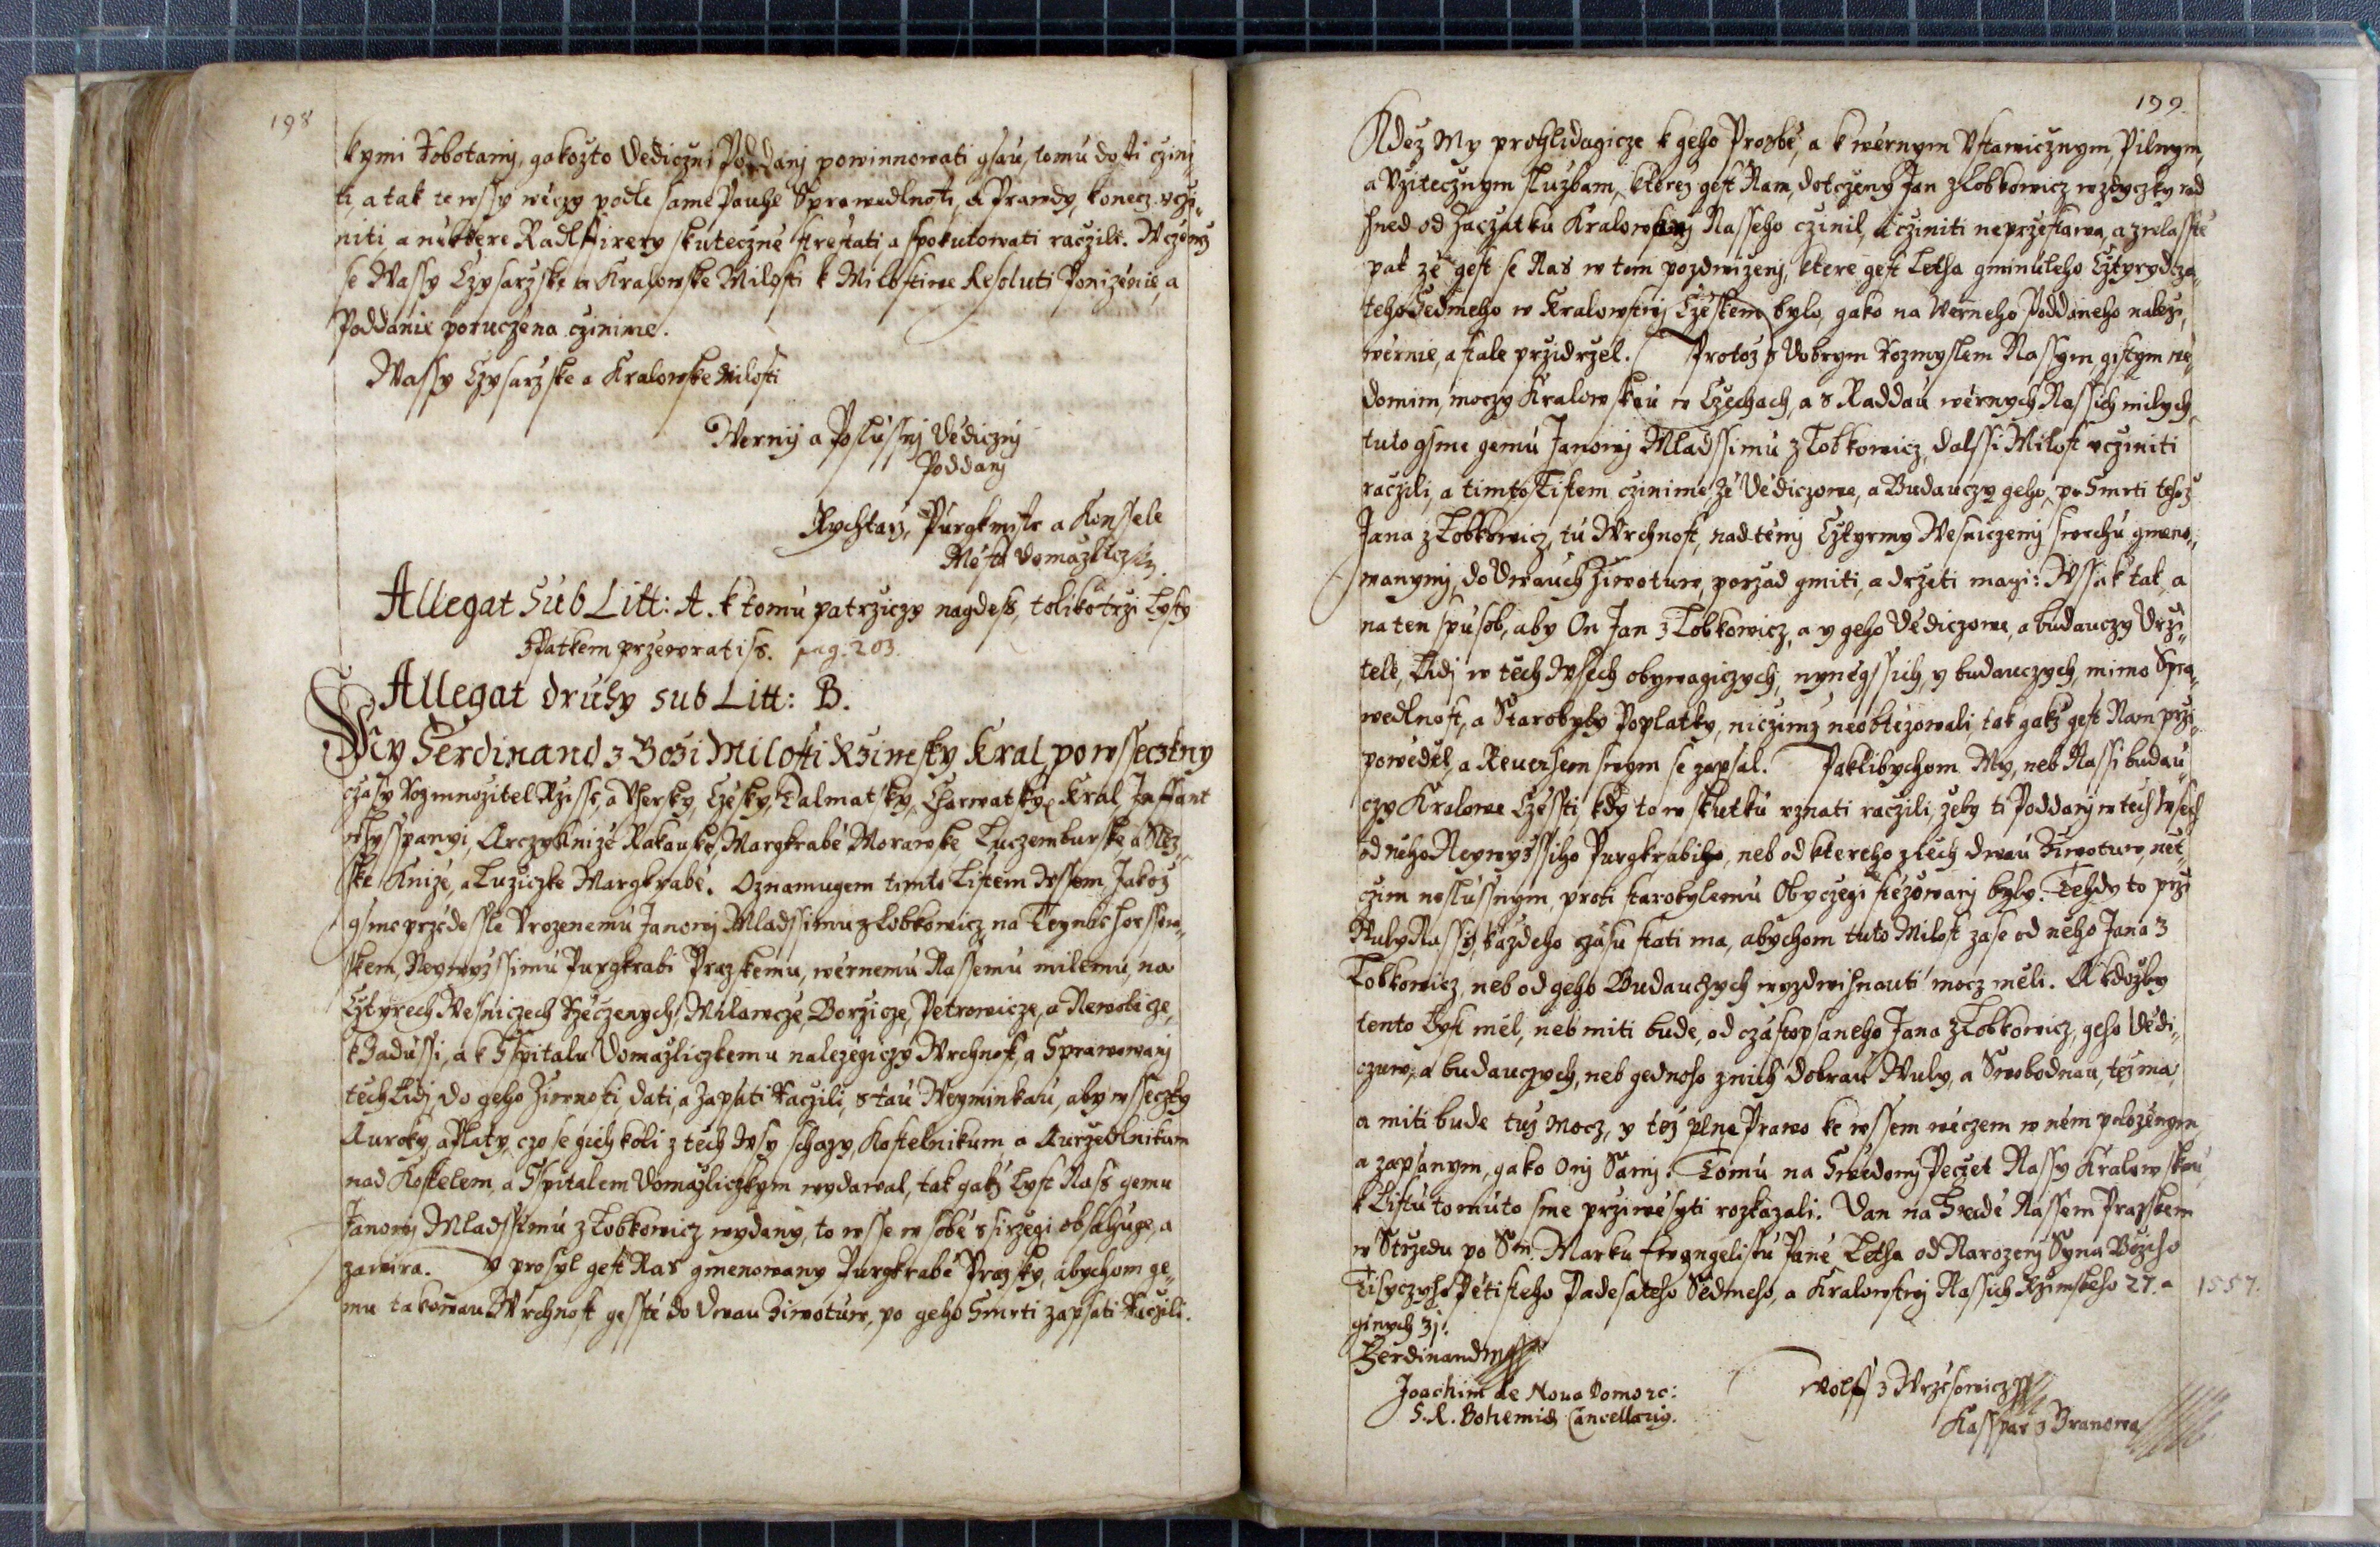 198
kymi Robotamj, gakožto Dediczni Poddanj powinnowati gsau, tomu dosti czini-
ti, a tak te wssy wěczy podle same Pauhe Sprawedlnosti, a Prawdy, konecz uczi-
niti, a někttere Radlffirery skuteczně strestati, a spokutowati raczilt. W czemž
se Wassy Czysarzske a Kralowske Milosti k Milostiwe Resoluti Ponižěnie, a
Poddanie poruczena czinime.
Wassy Czysarzske a Kralowske Milosti
Wernij a Poslussnj Dědicznj
Poddanj
Rychtarž, Purgkmistr a Konssele
Města Domažlicz
Allegat Sub Litt: A. k tomu patržiczy nagdess, toliko trži Lysty
Zpatkem przewratiss. pag. 203.
Allegat druhy sub Litt: B.
My Ferdinand z Boži Milosti Ržimsky Kral, po wsseczkny
czasy Rozmnožitel Ržisse, a Uhersky, Czesky, Dalmatsky, Charwatsky, Kral, Inffant
w Hysspanyi, Arczyknižě Rakauske, Margkrabě Morawske, Luczemburske, a Slez-
ske Kniže, a Lužiczke Margkrabě. Oznamugem timto Listem Wssem, Jakož
gsme przědessle Urozenemu Janowj Mladssimu z Lobkowicz na Teynie Horssow-
skem, Neywyžssimu Purgkrabi Pražskemu, wěrnemu Nassemu milemu, na
Cztyrech Wesniczech Ržeczenych, Milawcze, Boržicze, Petrowicze, a Newolicze,
k Zadussi, a k Sspitalu Domažliczkemu naležegiczy Wrchnost, a Sprawowanj
těch Lidj, do geho Žiwnosti dati, a zapsati Raczili, s tau Weyminkau, aby wsseczky
Auroky, a Platy, czo se gich koli z těch Wsy schazy, Kostelnikum, a Auržedlnikum
nad Kostelem, a Sspitalem Domažliczkym wydawal, tak gakž Lyst Nass gemu
Janowj Mladssimu z Lobkowicz wydany, to wsse w sobě ssiržegi obsahuge, a
zawira. Y prosyl gest Nas gmenowany Purgkrabě Pražsky, abychom ge-
mu takowau Wrchnost gesstě do Dwau Žiwotuw, po geho Smrti zapsati Raczili.
199
Kdež My prohlidagicze k geho Prozbě, a k wěrnym Ustawicznym, Pilnym,
a Užitecznym službam, kterež gest Nam, dotczeny Jan z Lobkowicz wždyczky rad
hned od Zaczatku Kralowstwj Nasseho czinil, a cziniti neprzestawa, a zwlasstě
pak že gest se Nas w tom pozdwiženj, ktere gest Letha gminuleho Cztyrydcza-
teho Sedmeho w Kralowstwj Czeskem bylo, gako na Werneho Poddaneho naleži,
wěrnie, a stale przidržel. Protož s Dobrym Rozmyslem Nassym, gistym wě-
domim, moczy Kralowskau w Czechach, a s Raddau wěrnych Nassich milych,
tuto gsme gemu Janowj Mladssimu z Lobkowicz, dalssi Milost ucziniti
raczili, a timto Listem czinime, že Dědiczowe, a Budauczy geho, po Smrti tehož
Jana z Lobkowicz, tu Wrchnost, nad těmj Cztyrmy Wesniczemj swrchu gmeno-
wanymj, do Dwauch Žiwotuw, poržad gmiti, a držeti magi: Wssak tak, a
na ten spusob, aby On Jan z Lobkowicz, a y geho Dědiczowe, a budauczy Drži-
tele, Lidj w těch Wsech obywagiczych, nyněgssich, y budauczych, mimo Spra-
wedlnost, a Starobyly Poplatky, niczimž neobtěžowali, tak gakž gest Nam przi-
powěděl, a Reuersem swym se zapsal. Paklibychom My, neb Nassi budau-
czy Kralowe Czessti kdy to w skutku uznati raczili, žeby ti Poddanj w těch Wsech
od něho Neywyžssiho Purgkrabiho, neb od ktereho z těch dwau Žiwotuw, něc-
czim neslussnym, proti starobylemu Obyczegi stěžowanj byly. Tehdy to przi
Wuly Nassy, každeho czasu stati ma, abychom tuto Milost zase od něho Jana z
Lobkowicz, neb od geho Budauczych wyzdwihnauti mocz měli. A kdožby
tento Lyst měl, neb miti bude, od czastopsaneho Jana z Lobkowicz, geho Dědi-
czuw, a budauczych, neb gednoho z nich dobrau Wuly, a Swobodnau, tež ma,
a miti bude tuž Mocz, y tež plne Prawo ke wssem wěczem w něm položenym
a zapsanym, gako Onj Samj. Tomu na Swědomj Peczet Nassy Kralowskau
k Listu tomuto sme prziwěsyti rozkazali. Dan na Hradě Nassem Pražskem
w Strzedu po Stm. Marku Ewangelistu Paně Letha od Narozenj Syna Božiho
Tisyczyho Pětisteho Padesateho Sedmeho, a Kralowstwj Nassich Ržimskeho 27. a 1557.
ginych 31.
Ferdinand
Joachim de Noua Domo rc:
S. R. Bohemiæ Cancellariq.
Wolff z Wržesowicz
Kasspar z Granowa